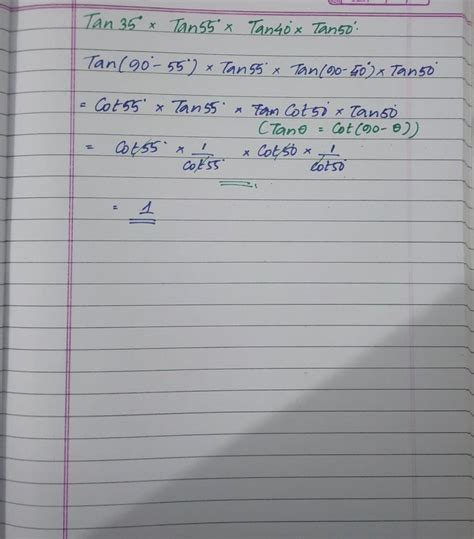 Tan 35° × Tan55° × Tan40° × Tan50°
Tan(90° - 55°) × Tan55° × Tan(90 - 50°) × Tan50°
= Cot55° × Tan55° × Tan Cot50° × Tan50°
(Tanθ = Cot(90 - θ))
= Cot55° × 1/Cot55° × Cot50 × 1/Cot50°
= 1